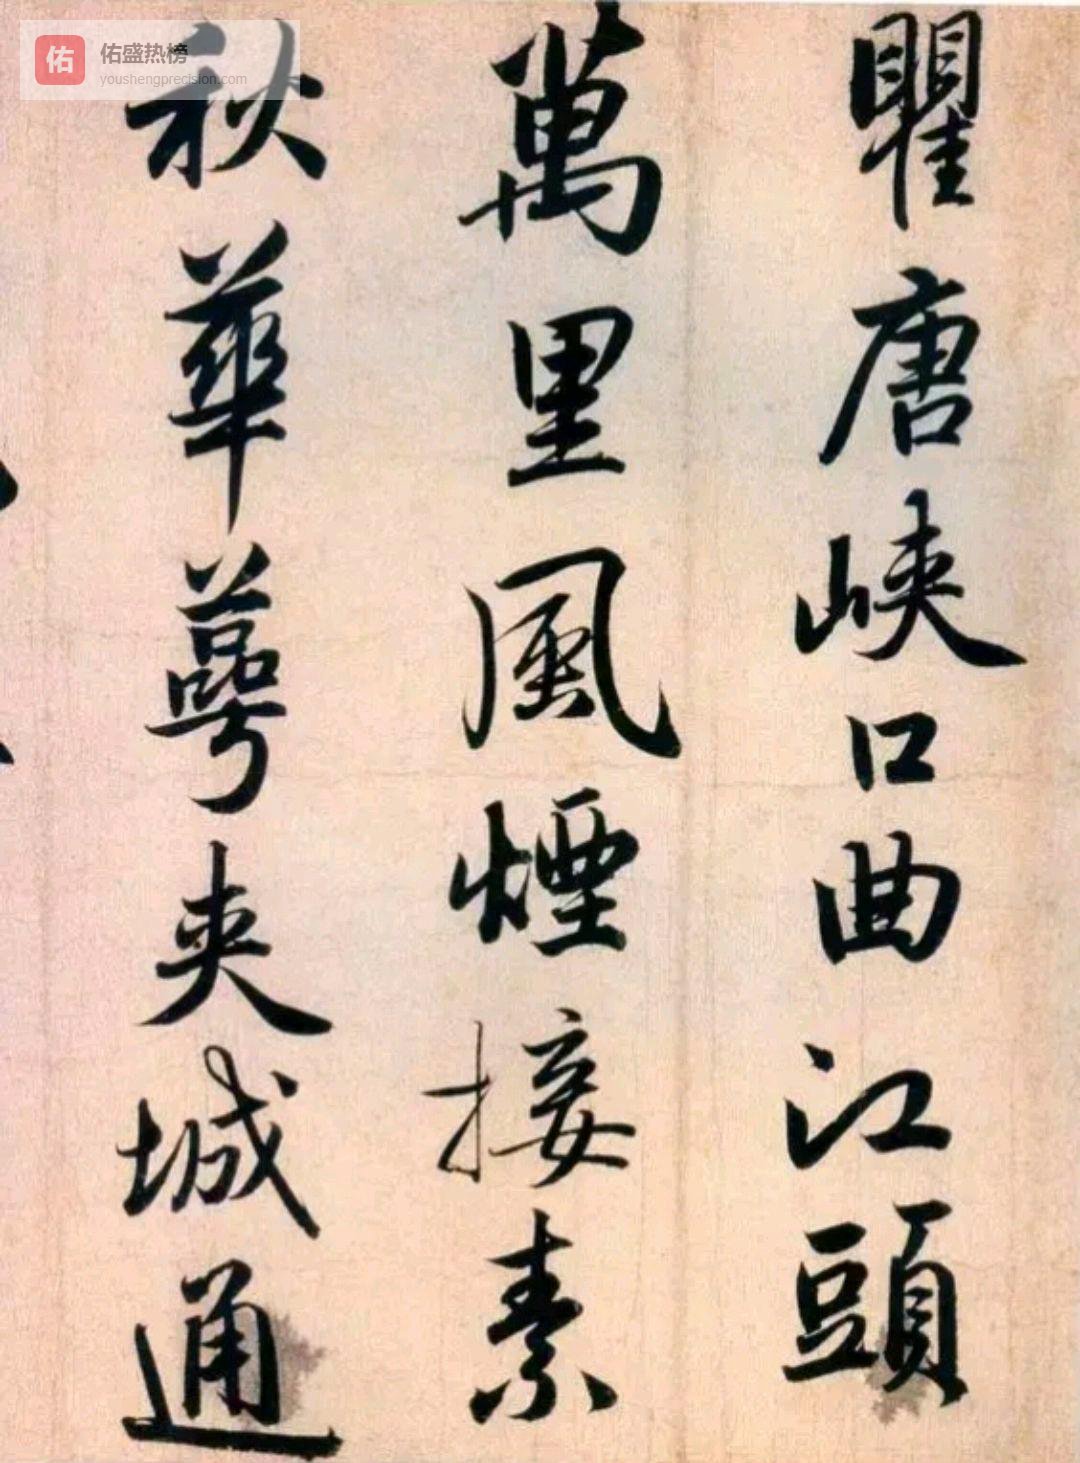 瞿唐峽口曲江頭
萬里風煙接素
秋華萼夾城通
佑
佑盛热榜
youshengprecision.com